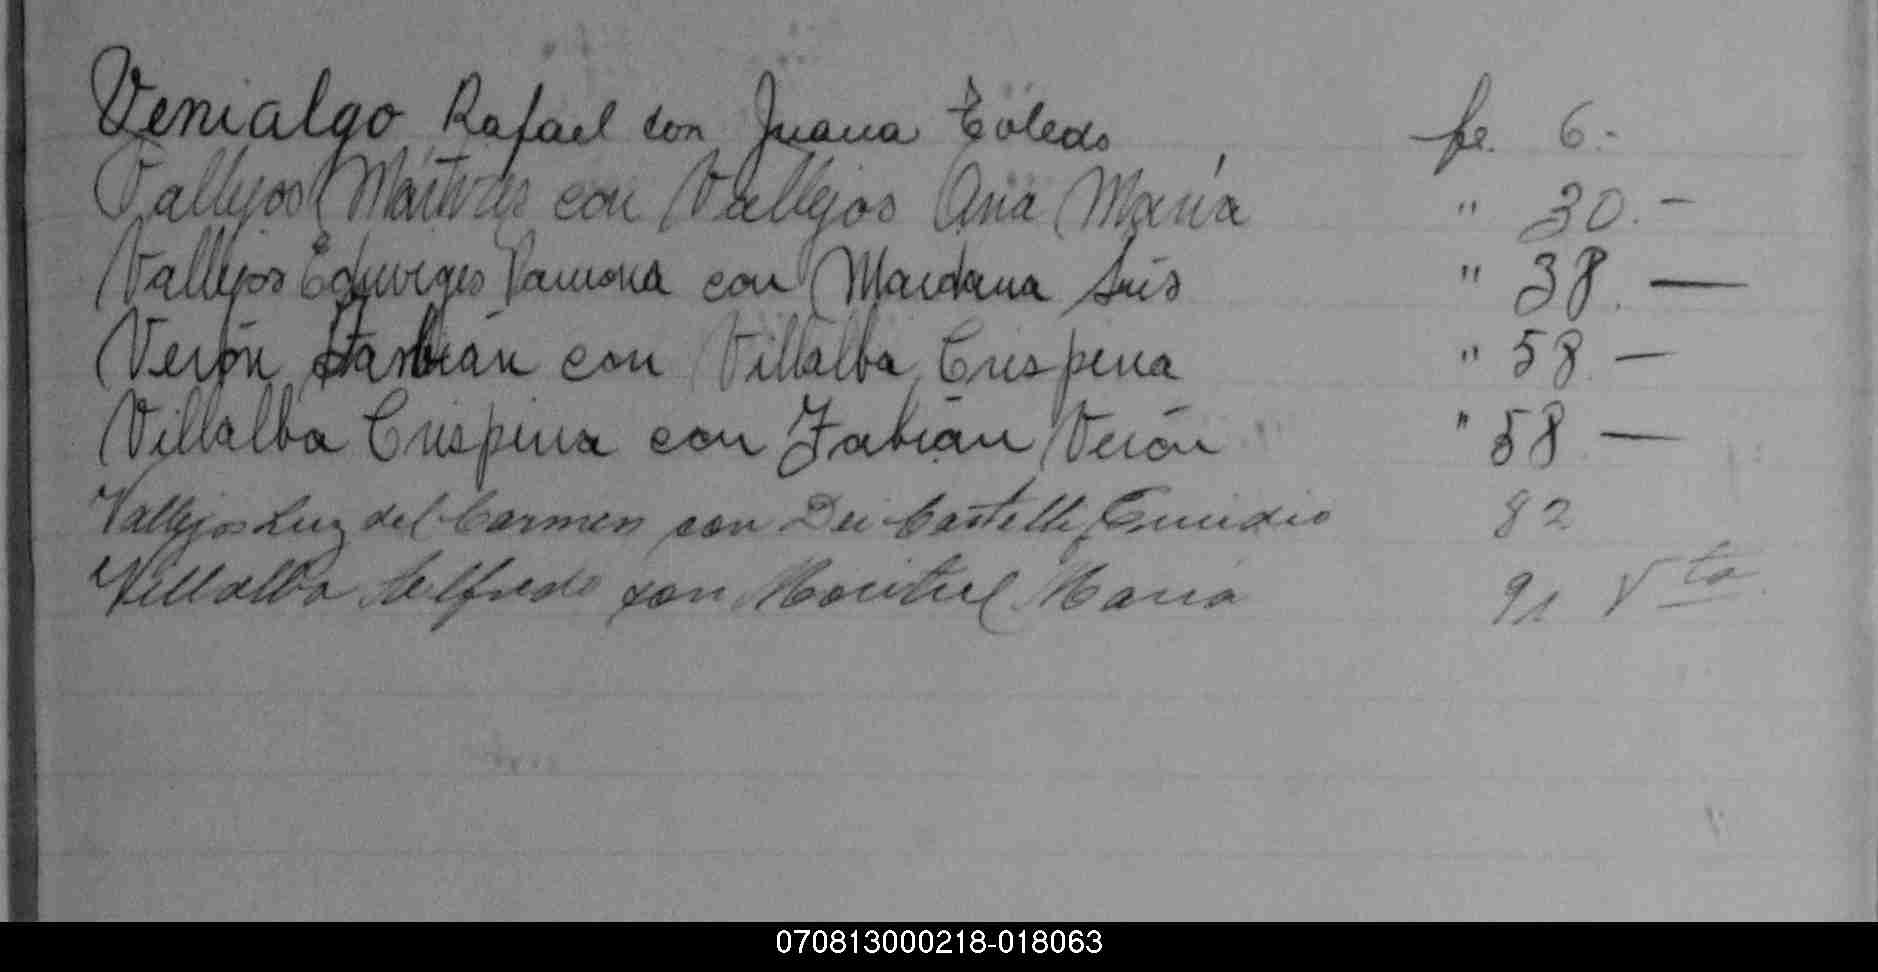 Venialgo Rafael con Juana Toledo fe. 6.-
Vallejos Mártires con Vallejos Ana María " 30.-
Vallejos Eduviges Ramona con Maidana Luis " 38.—
Verón Fabián con Villalba Crispina " 58.—
Villalba Crispina con Fabián Verón " 58.—
Vallejos Luz del Carmen con Dei Castelli, Emidio 82
Villalba Wilfredo con Montiel María 91 Vta
070813000218-018063